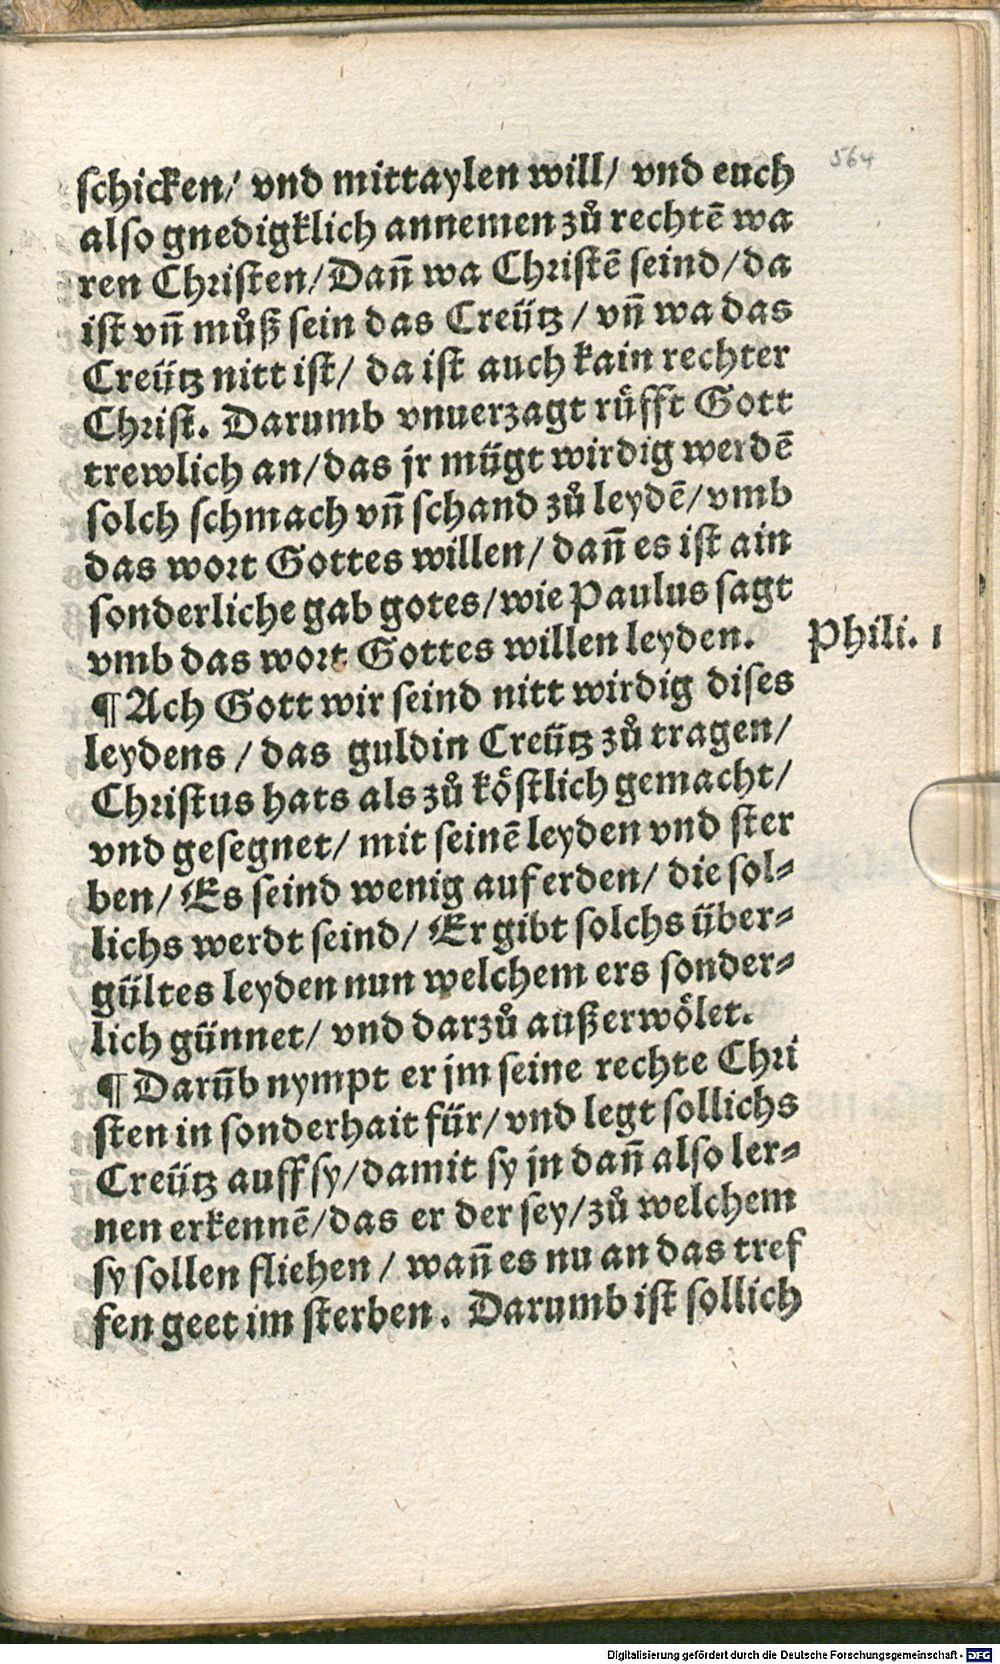 564
schicken/ vnd mittaylen will/ vnd euch
also gnedigklich annemen zů rechtē wa
ren Christen/Dañ wa Christē seind/da
ist vñ můß sein das Creütz/ vñ wa das
Creütz nitt ist/ da ist auch kain rechter
Christ. Darumb vnuerzagt rüfft Gott
trewlich an/das jr mügt wirdig werdē
solch schmach vñ schand zů leydē/vmb
das wort Gottes willen/ dañ es ist ain
sonderliche gab gotes/wie Paulus sagt
vmb das wort Gottes willen leyden.
Phili. 1
¶Ach Gott wir seind nitt wirdig dises
leydens/ das guldin Creütz zů tragen/
Christus hats als zů köstlich gemacht/
vnd gesegnet/ mit seinē leyden vnd ster
ben/ Es seind wenig auf erden/ die sol-
lichs werdt seind/ Er gibt solchs über-
gültes leyden nun welchem ers sonder-
lich günnet/ vnd darzů außerwölet.
¶Darūb nympt er jm seine rechte Chri
sten in sonderhait für/ vnd legt sollichs
Creütz auff sy/damit sy jn dañ also ler-
nen erkennē/das er der sey/zů welchem
sy sollen fliehen/ wañ es nu an das tref
fen geet im sterben. Darumb ist sollich
Digitalisierung gefördert durch die Deutsche Forschungsgemeinschaft - DFG